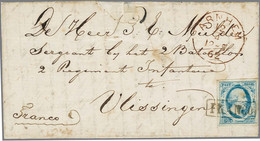 De Heer J. E. Mulder
Sergeant by het 2 Bataillon
2 Regiment Infanterie
te
Vlissingen
Franco